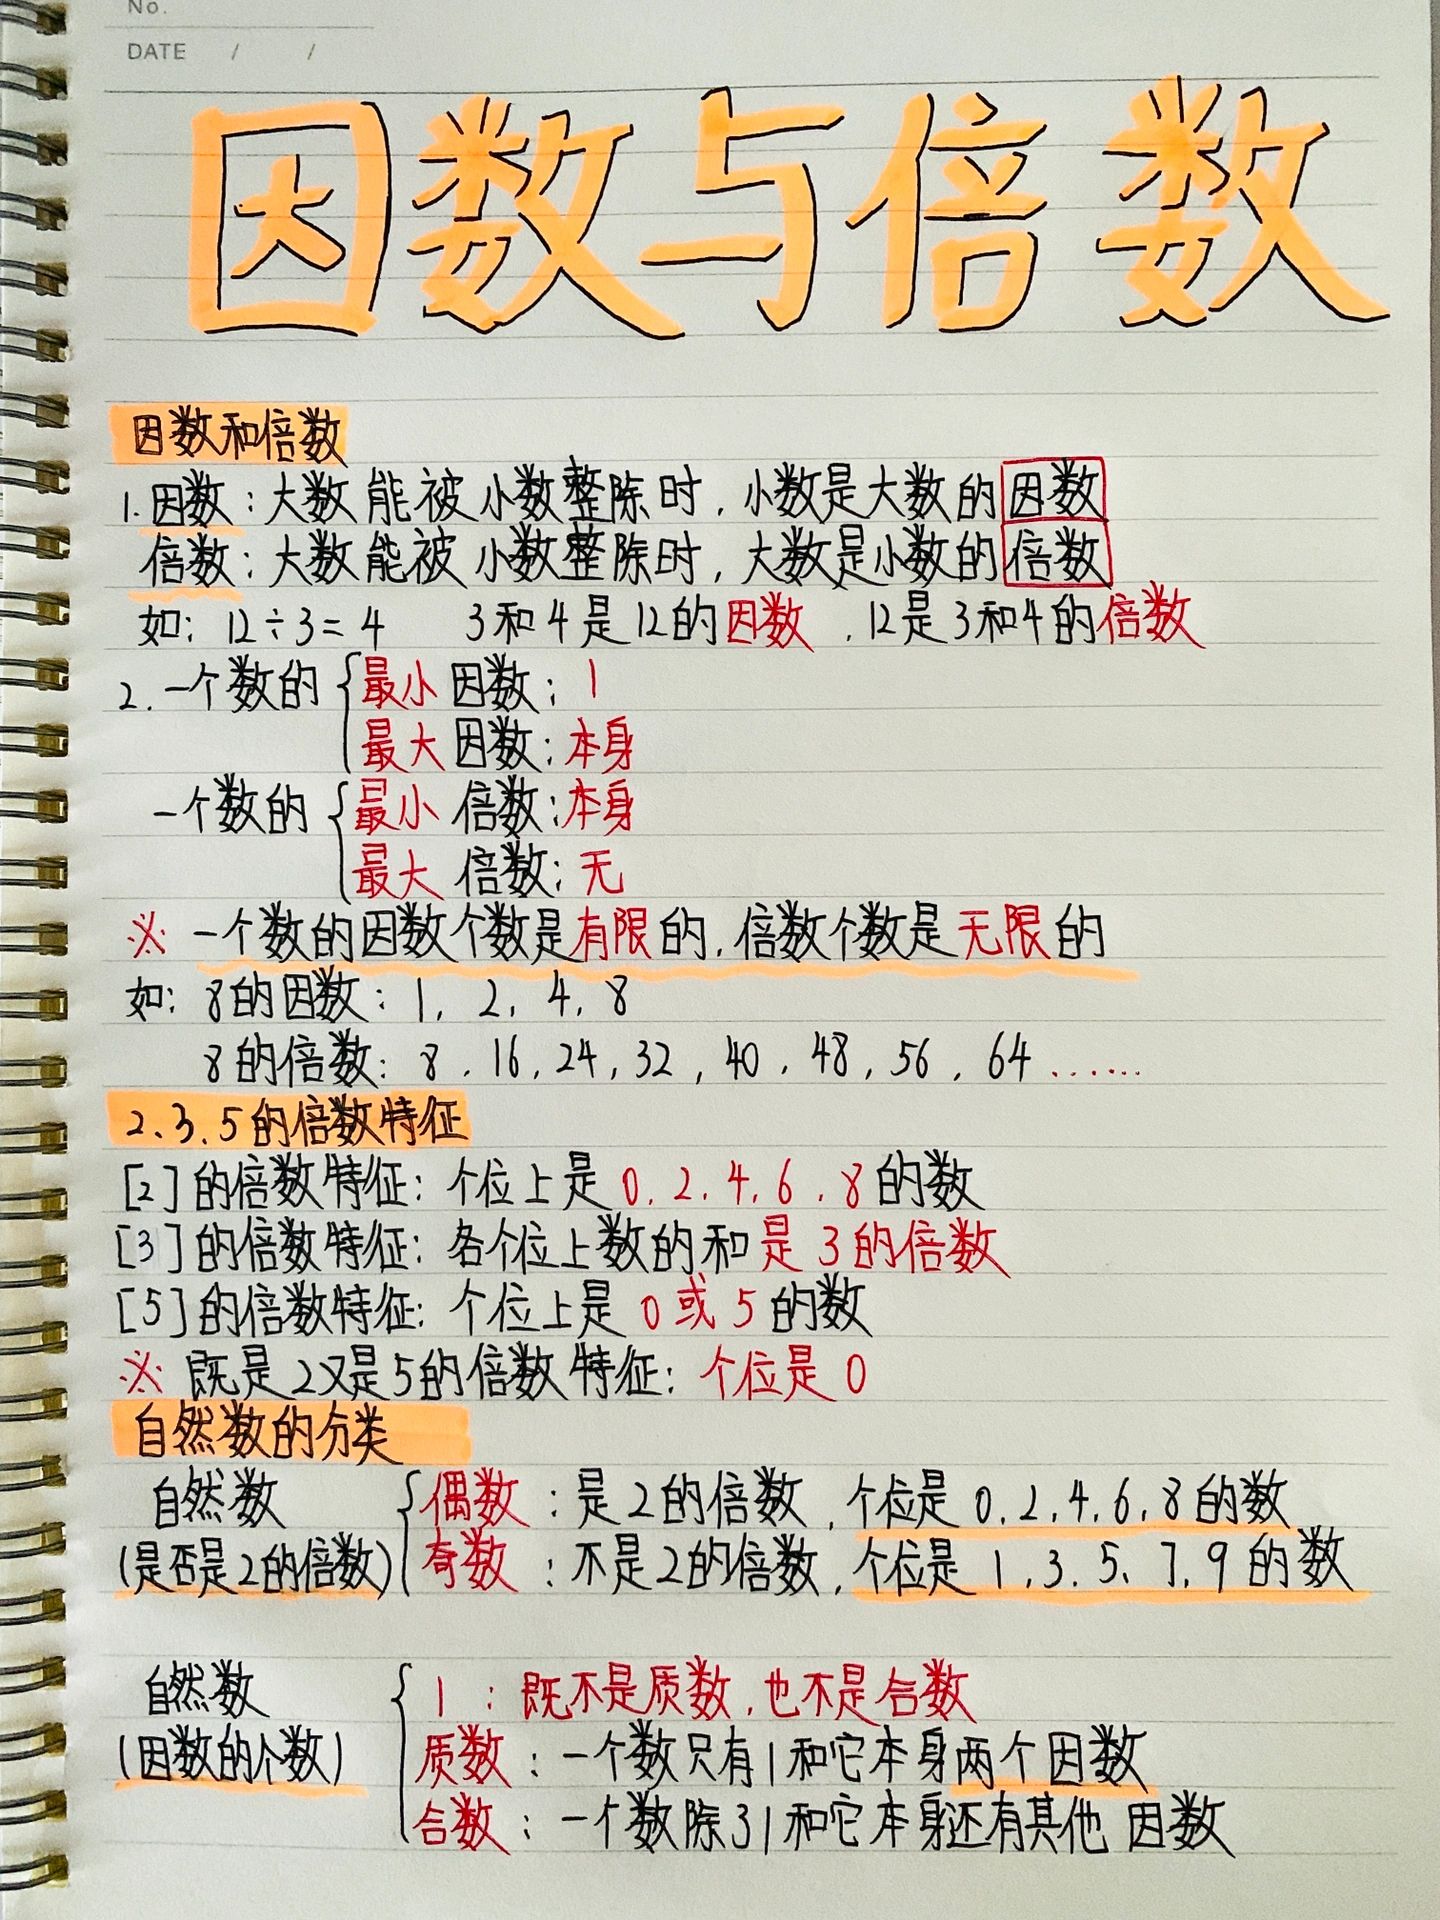 No.
DATE / /
因数与倍数
因数和倍数
1.因数：大数能被小数整除时，小数是大数的因数
倍数：大数能被小数整除时，大数是小数的倍数
如：12÷3=4 3和4是12的因数，12是3和4的倍数
2.一个数的{最小因数：1
最大因数：本身
一个数的{最小倍数：本身
最大倍数：无
※ 一个数的因数个数是有限的，倍数个数是无限的
如：8的因数：1，2，4，8
8的倍数：8，16，24，32，40，48，56，64……
2、3、5的倍数特征
[2]的倍数特征：个位上是0、2、4、6、8的数
[3]的倍数特征：各个位上数的和是3的倍数
[5]的倍数特征：个位上是0或5的数
※ 既是2又是5的倍数特征：个位是0
自然数的分类
自然数 {偶数：是2的倍数，个位是0、2、4、6、8的数
(是否是2的倍数) 奇数：不是2的倍数，个位是1、3、5、7、9的数
自然数 {1：既不是质数，也不是合数
(因数的个数) 质数：一个数只有1和它本身两个因数
合数：一个数除了1和它本身还有其他因数